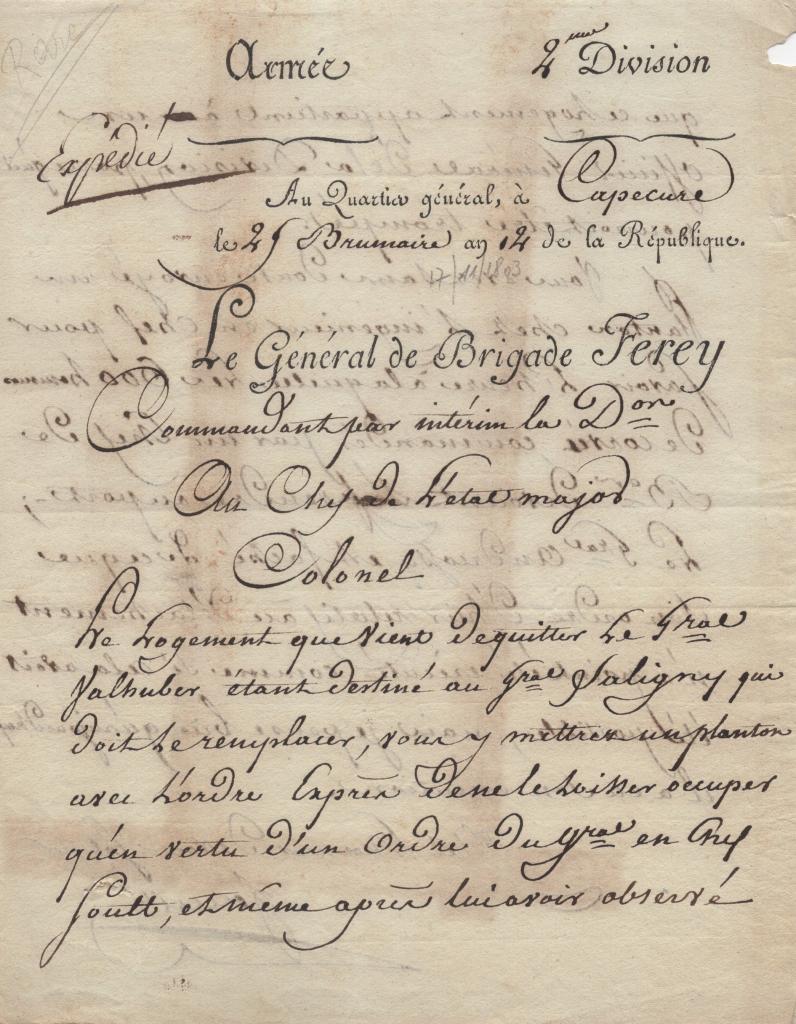 Rare
Armée 2eme Division
Expédié
Au Quartier général, à Capecure
le 25 Brumaire an 12 de la République.
17/11/1803
Le Général de Brigade Ferey
Commandant par intérim la Don
Au Chef de L'etat major
Colonel
Le Logement que vient de quitter Le Gral
Valhuber, étant destiné au Gral Saligny qui
doit Le remplacer, vous y mettrez un planton
avec L'ordre Exprès de ne le Laisser occuper
qu'en vertu d'un Ordre du Gral en Chef
Soult, et même après lui avoir observé